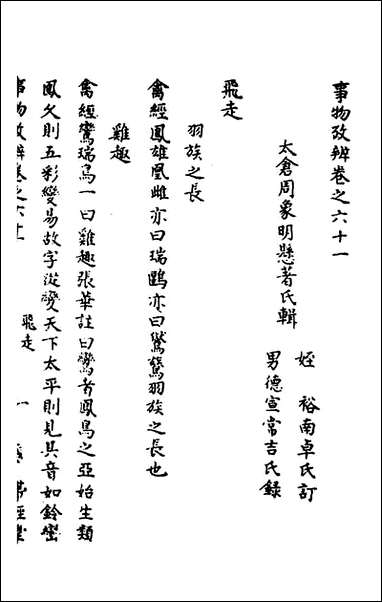 事物攷辨卷之六十一
太倉周象明懸著氏輯
姪　裕南卓氏訂
男德宣常吉氏錄
飛走
羽族之長
禽經鳳雄凰雌亦曰瑞鶠亦曰鸑鷟羽族之長也
雞趣
禽經鸞瑞鳥一曰雞趣張華註曰鸞者鳳鳥之亞始生類
鳳久則五彩變易故字從變天下太平則見其音如鈴巒
事物攷辨卷之六十一
飛走
一